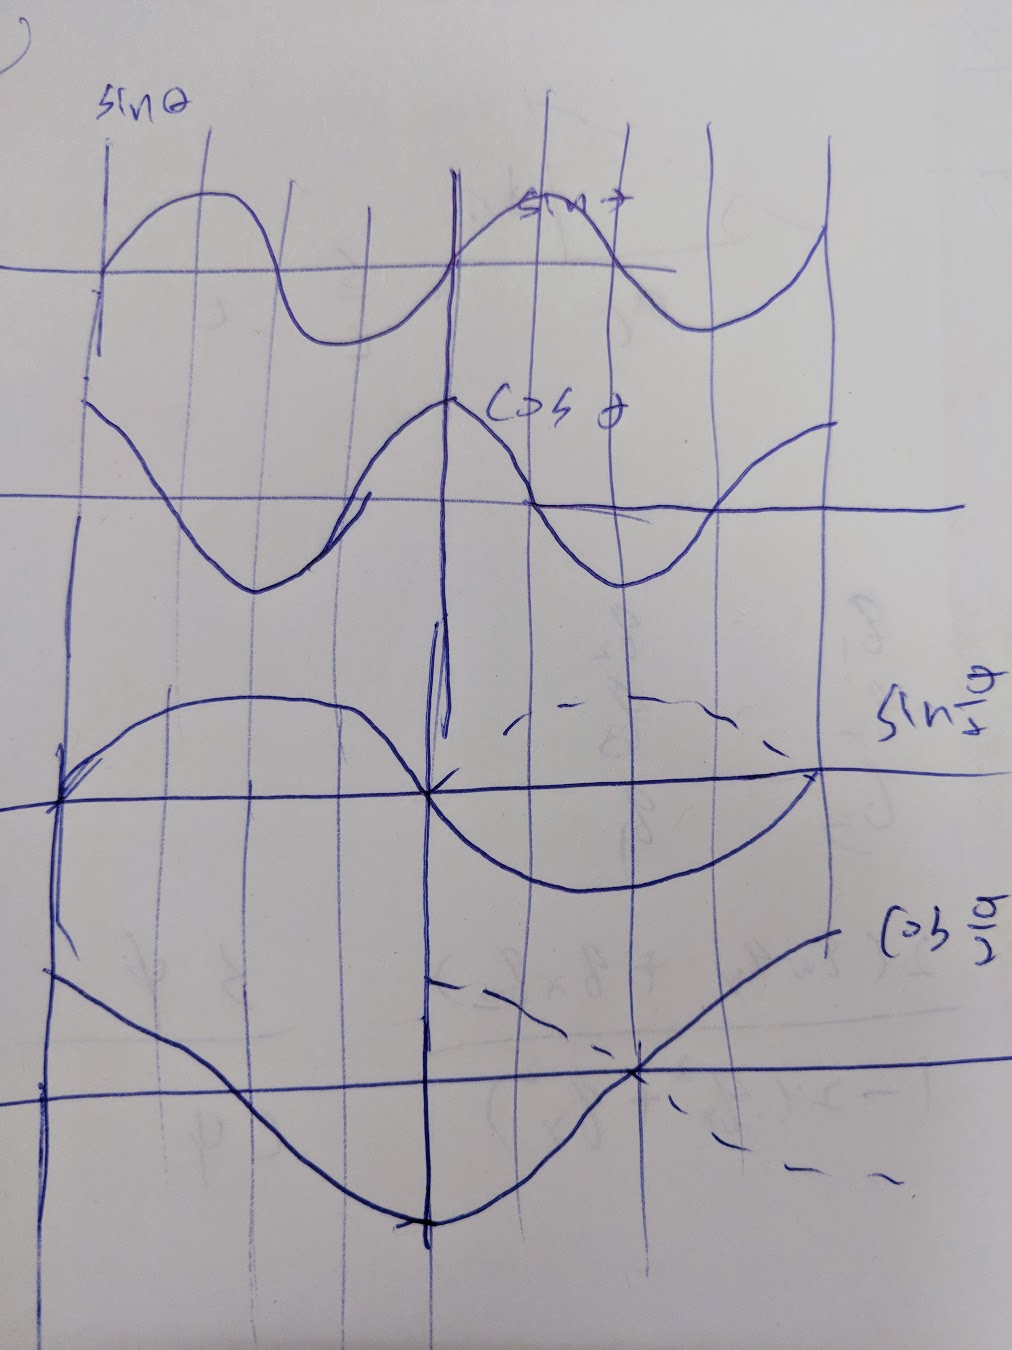 sin θ
sin θ
cos θ
sin θ/2
cos θ/2